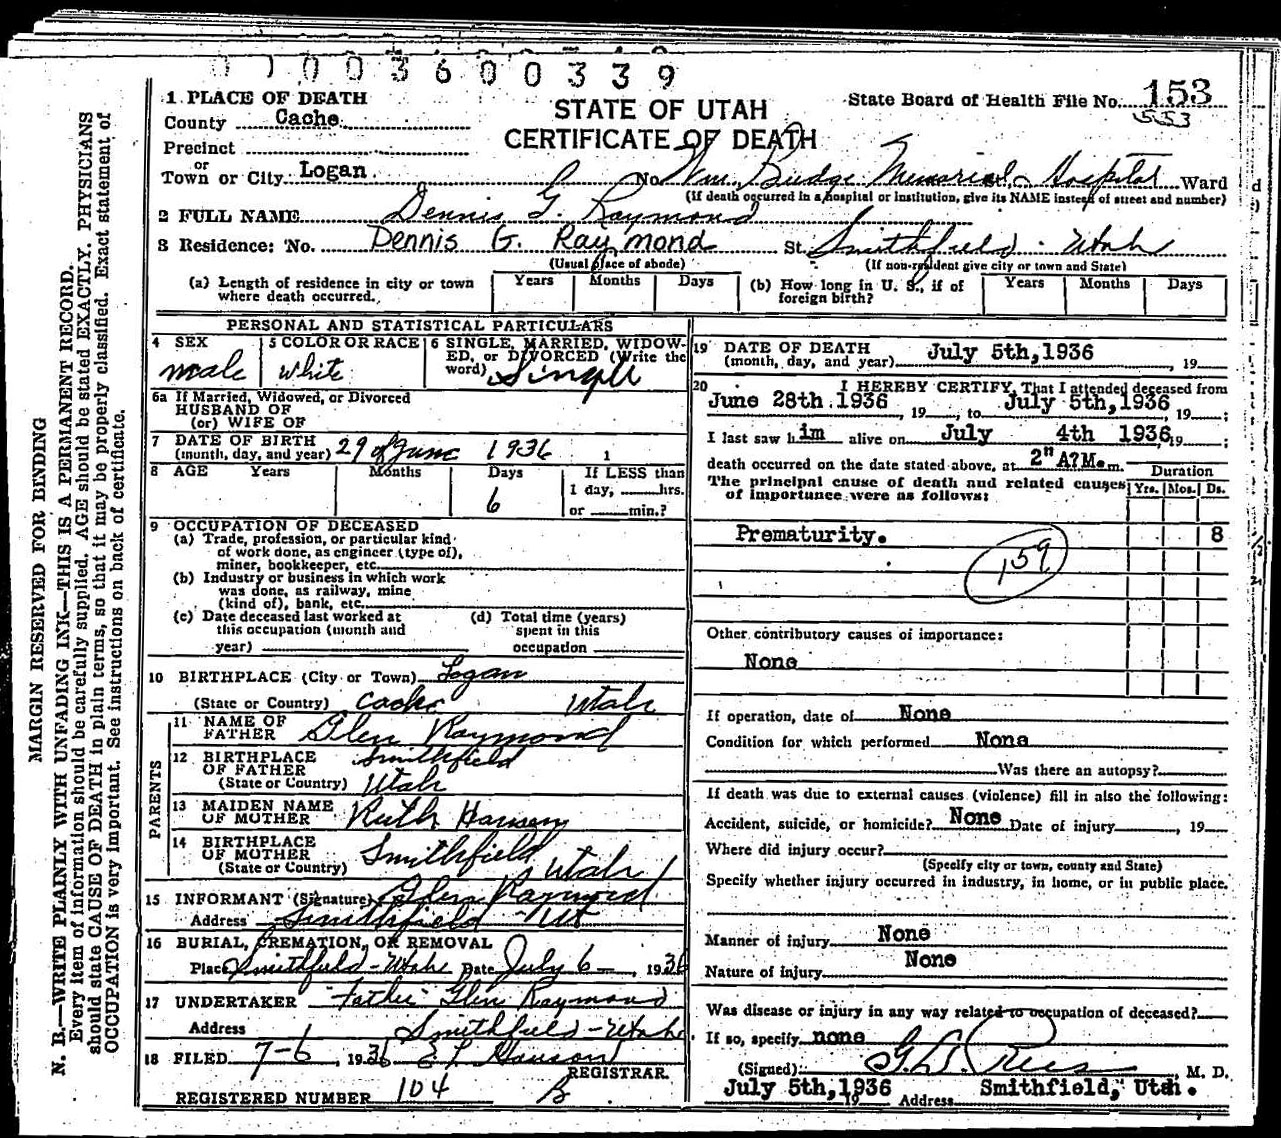 0 1 0 0 3 6 0 0 3 3 9
MARGIN RESERVED FOR BINDING
N. B.—WRITE PLAINLY WITH UNFADING INK—THIS IS A PERMANENT RECORD.
Every item of information should be carefully supplied. AGE should be stated EXACTLY. PHYSICIANS
should state CAUSE OF DEATH in plain terms, so that it may be properly classified. Exact statement of
OCCUPATION is very important. See instructions on back of certificate.
1 PLACE OF DEATH
County Cache
Precinct
or
Town or City Logan
STATE OF UTAH
CERTIFICATE OF DEATH
State Board of Health File No. 153
553
No. Wm. Budge Memorial Hospital Ward
(If death occurred in a hospital or institution, give its NAME instead of street and number)
2 FULL NAME Dennis G. Raymond
3 Residence: No. Dennis G. Raymond St. Smithfield - Utah
(Usual place of abode) (If non-resident give city or town and State)
(a) Length of residence in city or town where death occurred. Years Months Days
(b) How long in U. S., if of foreign birth? Years Months Days
PERSONAL AND STATISTICAL PARTICULARS
4 SEX male
5 COLOR OR RACE white
6 SINGLE, MARRIED, WIDOWED, or DIVORCED (Write the word) Single
6a If Married, Widowed, or Divorced
HUSBAND OF
(or) WIFE OF
7 DATE OF BIRTH
(month, day, and year) 29 of June 1936
8 AGE Years Months Days If LESS than
6 1 day, hrs.
or min.?
9 OCCUPATION OF DECEASED
(a) Trade, profession, or particular kind
of work done, as engineer (type of),
miner, bookkeeper, etc.
(b) Industry or business in which work
was done, as railway, mine
(kind of), bank, etc.
(c) Date deceased last worked at
this occupation (month and
year)
(d) Total time (years)
spent in this
occupation
10 BIRTHPLACE (City or Town) Logan
(State or Country) Cache Utah
PARENTS
11 NAME OF FATHER Glen Raymond
12 BIRTHPLACE OF FATHER Smithfield
(State or Country) Utah
13 MAIDEN NAME OF MOTHER Ruth Hansen
14 BIRTHPLACE OF MOTHER Smithfield
(State or Country) Utah
15 INFORMANT (Signature) Glen Raymond
Address Smithfield Ut
16 BURIAL, CREMATION, OR REMOVAL
Place Smithfield - Utah Date July 6 —, 1936
17 UNDERTAKER "Father" Glen Raymond
Address Smithfield - Utah
18 FILED 7-6 1936
REGISTRAR.
REGISTERED NUMBER 104 B
19 DATE OF DEATH
(month, day, and year) July 5th, 1936, 19
20 I HEREBY CERTIFY, That I attended deceased from
June 28th 1936, 19 , to July 5th, 1936, 19 ;
I last saw him alive on July 4th 1936, 19 ;
death occurred on the date stated above, at 2" A?M. m.
The principal cause of death and related causes
of importance were as follows:
Duration
Yrs. Mos. Ds.
Prematurity. 8
159
Other contributory causes of importance:
None
If operation, date of None
Condition for which performed None
Was there an autopsy?
If death was due to external causes (violence) fill in also the following:
Accident, suicide, or homicide? None Date of injury , 19
Where did injury occur?
(Specify city or town, county and State)
Specify whether injury occurred in industry, in home, or in public place.
Manner of injury None
Nature of injury None
Was disease or injury in any way related to occupation of deceased?
If so, specify none
(Signed) G. D. Rees, M. D.
July 5th, 1936 19 Address Smithfield, Utah.